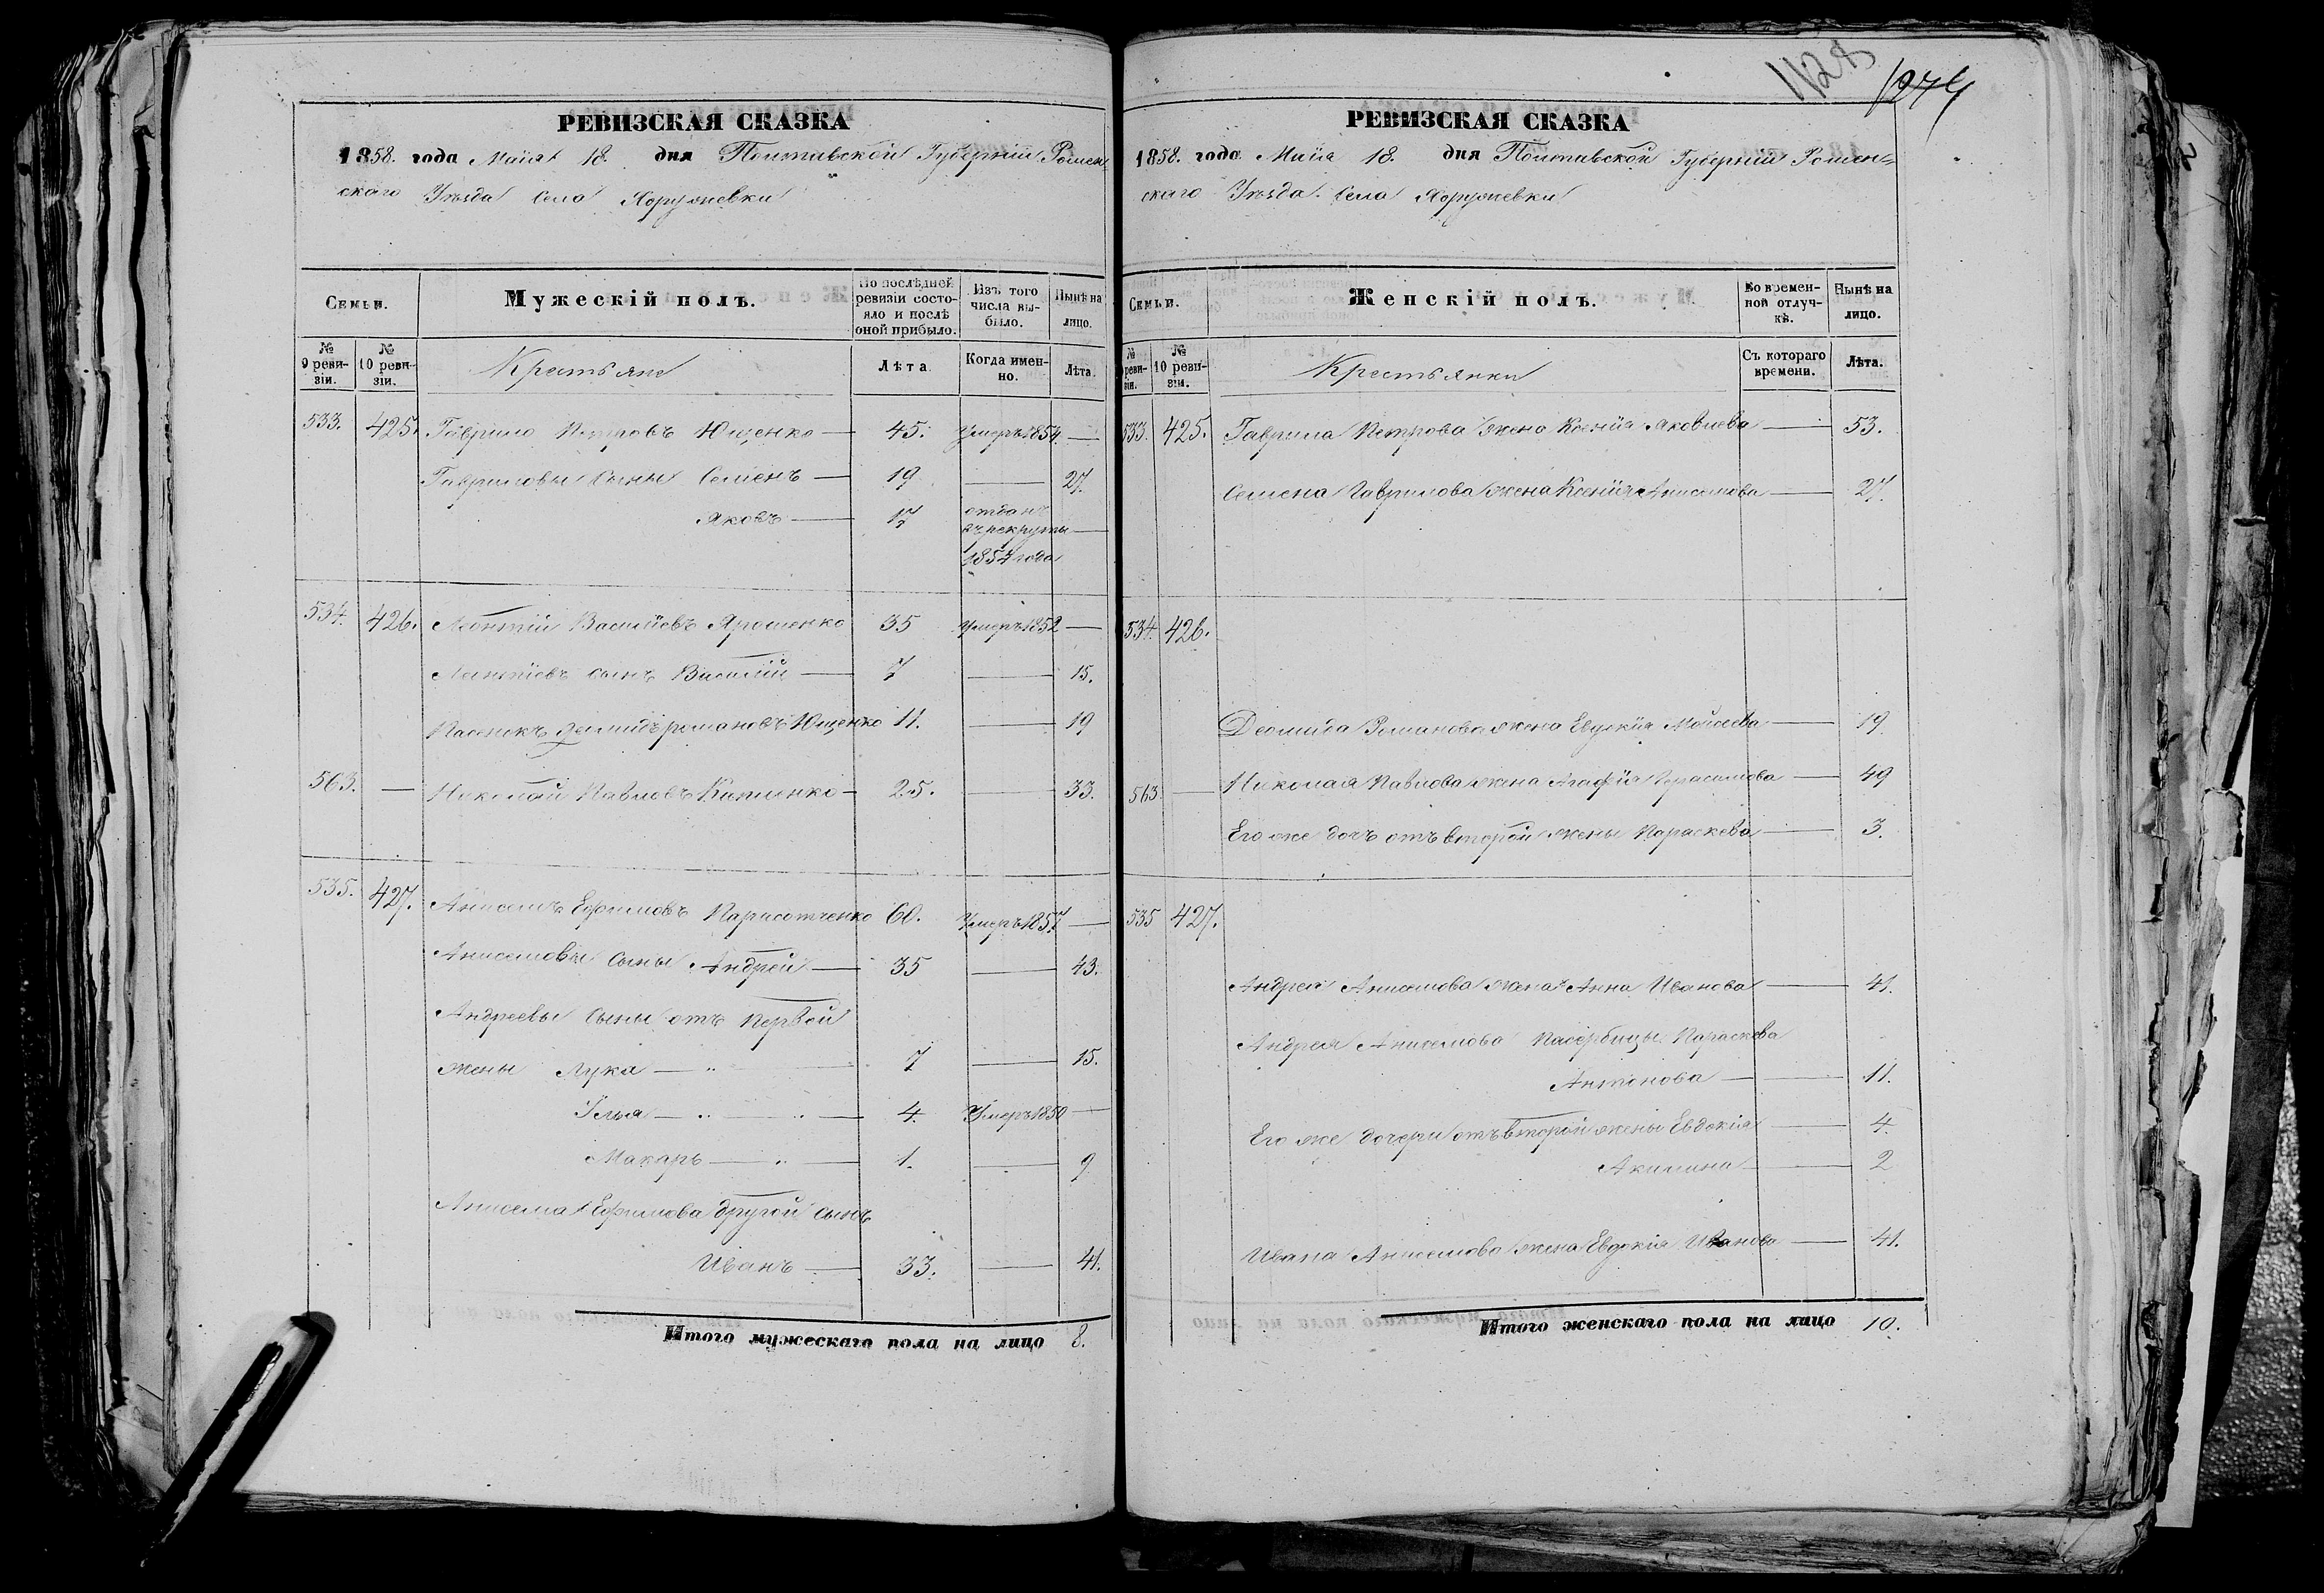 РЕВИЗСКАЯ СКАЗКА
1858. года Маія 18. дня Полтавской Губерніи Ромен
скаго Уѣзда Села Хоружевки
Семьи.
Мужескій полъ.
По послѣдней ревизіи состояло и послѣ оной прибыло.
Изъ того числа выбыло.
Нынѣ на лицо.
№ 9 ревизіи.
№ 10 ревизіи.
Крестьяне
Лѣта
Когда именно.
Лѣта.
533. 425. Гаврило Петровъ Ющенко — 45. Умеръ 1854 —
Гавриловы Сыны Семенъ — 19 — 27.
Яковъ — 17 отданъ
въ рекруты —
1854 года
534. 426. Леонтій Васильевъ Ярошенко 35 Умеръ 1852 —
Леонтіевъ сынъ Василій — 7 — 15.
Романовъ Ющенко 11. — 19
563. — Николай Павловъ — 25. — 33.
535. 427. Анисимъ Ефимовъ 60. Умеръ 1857 —
Анисимовы Сыны Андрей — 35 — 43.
Андреевы Сыны отъ первой
жены Лука — 7 — 15.
Илья — 4. Умеръ 1850 —
Макаръ — 1. — 9
Анисима Ефимова другой сынъ
Иванъ — 33. — 41.
Итого мужескаго пола на лицо 8.
1274
РЕВИЗСКАЯ СКАЗКА
1858. года Маія 18. дня Полтавской Губерніи Ромен=
скаго Уѣзда. Села Хоружевки
Семьи.
Женскій полъ.
Во временной отлучкѣ.
Нынѣ на лицо.
№ 9 ревизіи.
№ 10 ревизіи.
Крестьянки
Съ котораго времени.
Лѣта.
533. 425. Гаврила Петрова жена Ксенія Яковлева — 53.
Семена Гаврилова жена Ксенія Анисимова — 27.
534. 426.
Деомида Романова жена Евдокія Моисеева — 19.
563 — Николая Павлова жена Агафія Герасимова — 49
Его же дочь отъ второй жены Параскева — 3.
535 427.
Андрея Анисимова жена Анна Иванова — 41.
Андрея Анисимова Пасербицы. Параскева
Антонова — 11.
Его же дочери отъ второй жены Евдокія — 4.
Акилина — 2
Ивана Анисимова жена Евдокія Иванова — 41.
Итого женскаго пола на лицо 10.